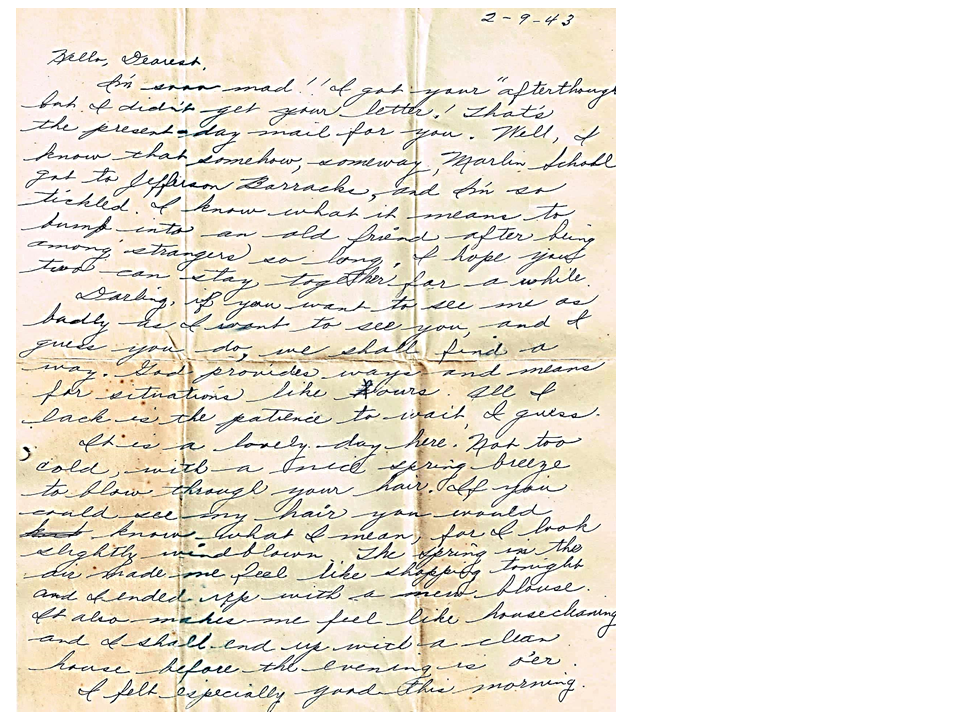 2-9-43
Hello, Dearest,
I'm sooo mad!! I got your "afterthough
but I didn't get your letter! That's
the present-day mail for you. Well, I
know that somehow, someway, Marlin
got to Jefferson Barracks, and I'm so
tickled. I know what it means to
bump into an old friend after being
among strangers so long. I hope you
two can stay together for a while.
Darling, if you want to see me as
badly as I want to see you, and I
guess you do, we shall find a
way. God provides ways and means
for situations like ours. All I
lack is the patience to wait, I guess.
It is a lovely day here. Not too
cold, with a nice spring breeze
to blow through your hair. If you
could see my hair you would
know what I mean, for I look
slightly windblown. The spring in the
air made me feel like shopping tonight
and I ended upp with a new blouse.
It also makes me feel like housecleaning
and I shall end up with a clean
house before the evening is o'er.
I felt especially good this morning.